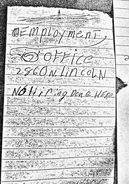 Employment
Office
2860 N LINCOLN
No Hiring Done Here